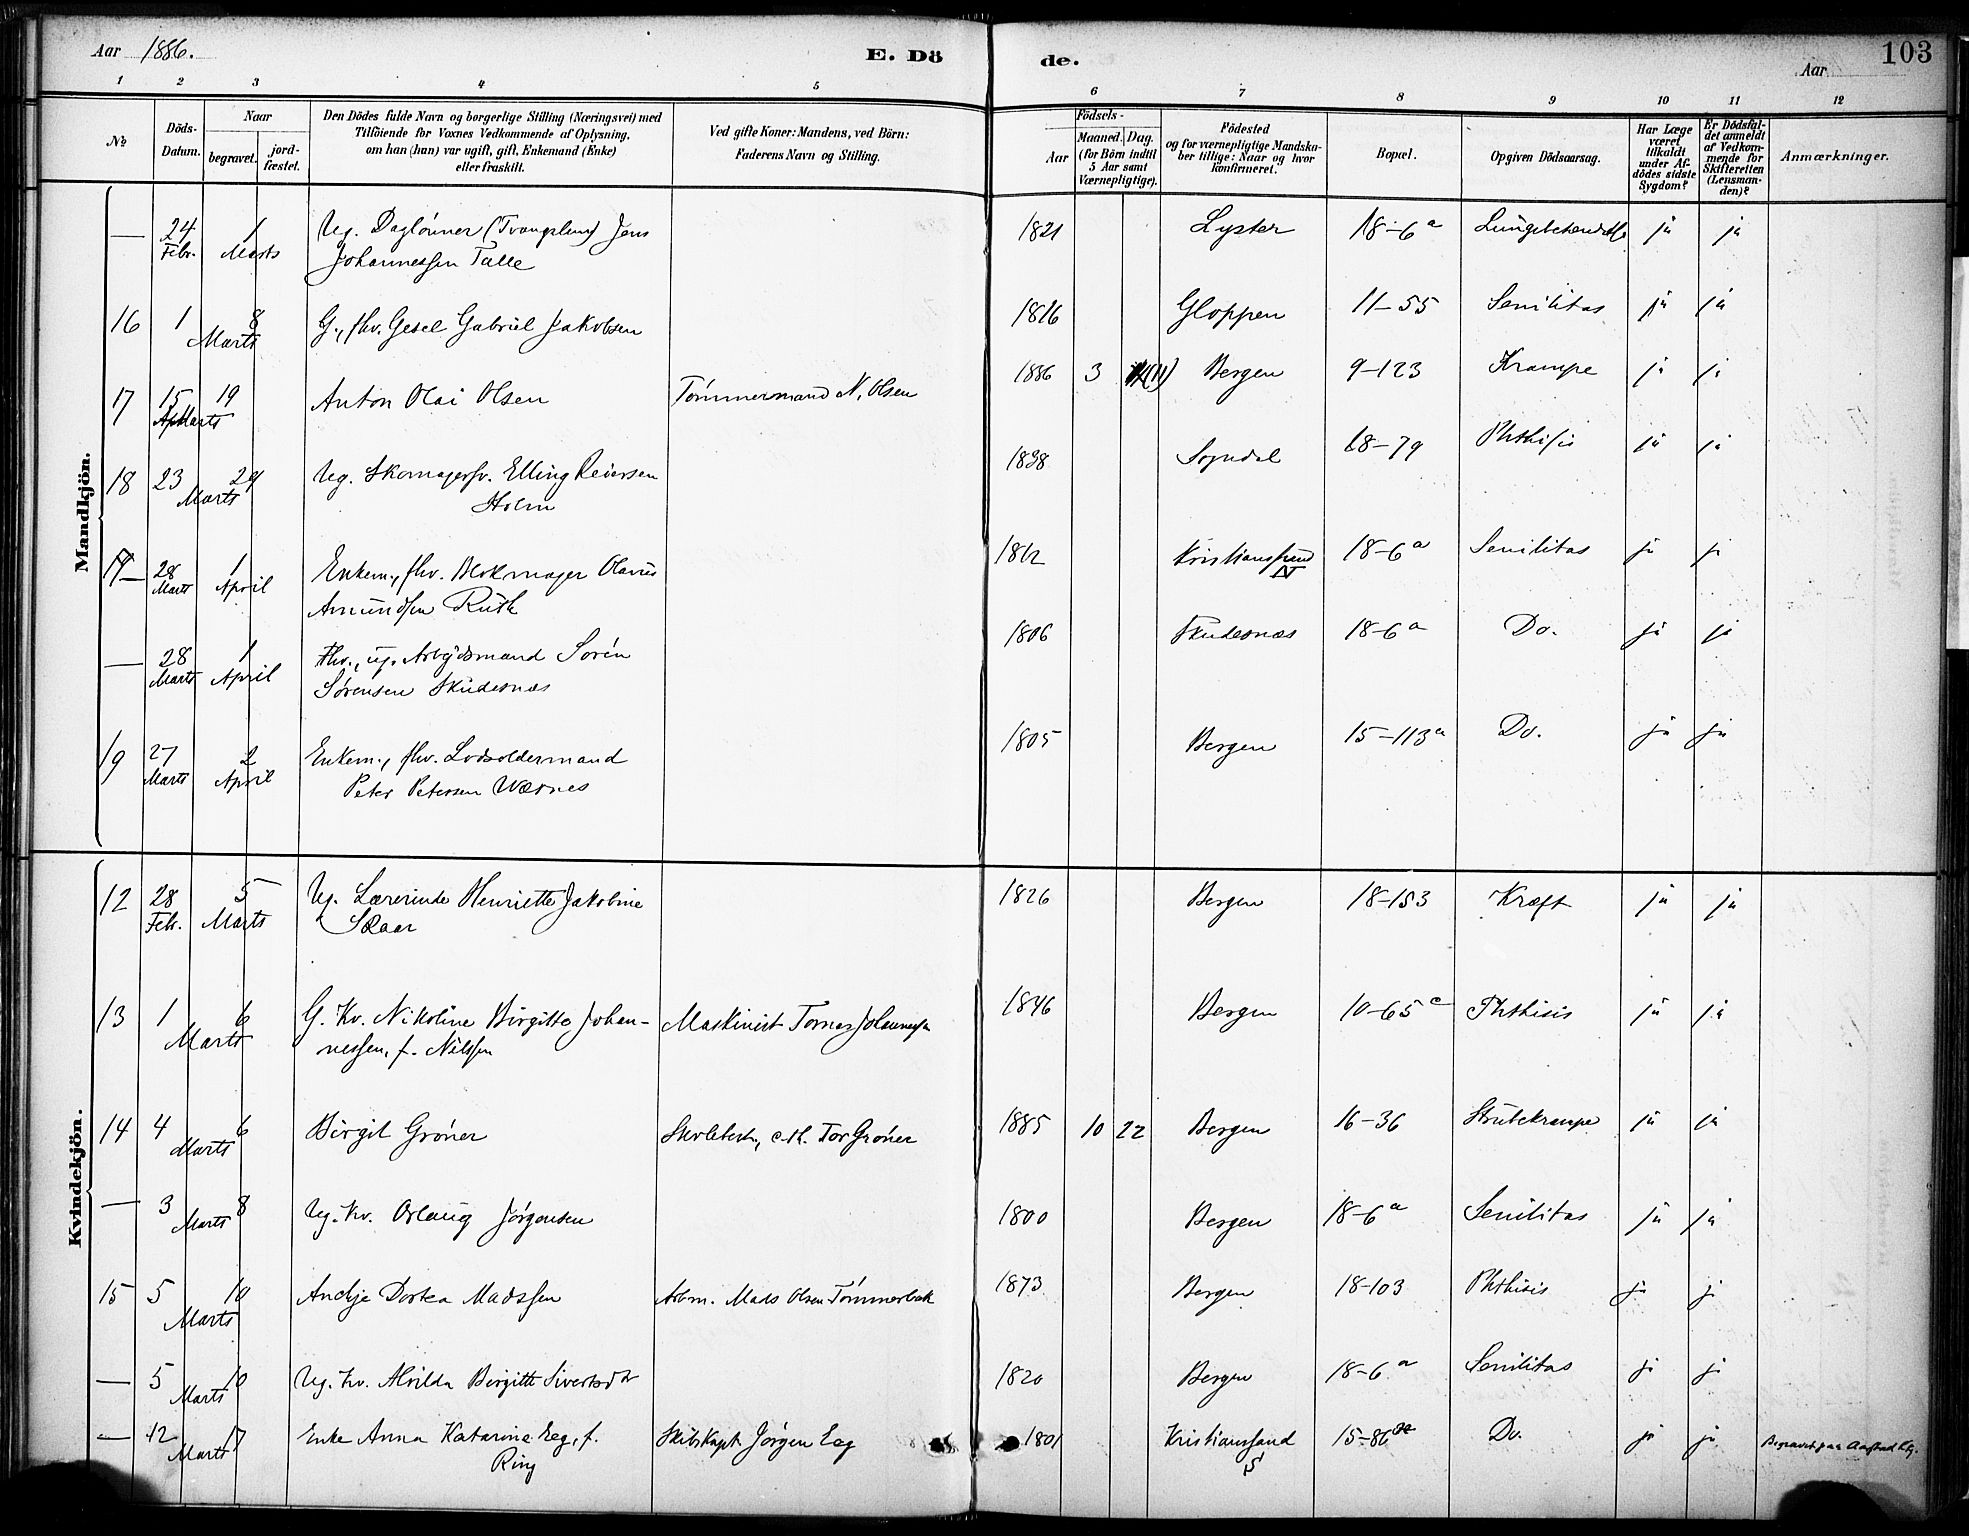 Aar 1886. E. Dö de. Aar 103
1 2 3 4 5 6 7 8 9 10 11 12
No Döds-Datum. Naar begravet. jord-fæstet.
Den Dödes fulde Navn og borgerlige Stilling (Næringsvei) med
Tilföiende for Voxnes Vedkommende af Oplysning,
om han (hun) var ugift, gift, Enkemand (Enke)
eller fraskilt.
Ved gifte Koner: Mandens, ved Börn:
Faderens Navn og Stilling.
Födsels-
Aar Maaned. Dag.
(for Börn indtil
5 Aar samt
Værnepligtige).
Födested
og for værnepligtige Mandska-
ber tillige: Naar og hvor
konfirmeret.
Bopæl.
Opgiven Dödsaarsag.
Har Læge
været
tilkaldt
under Af-
dödes sidste
Sygdom?
Er Dödsfal-
det anmeldt
af Vedkom-
mende for
Skifteretten
(Lensman-
den)?
Anmærkninger.
Mandkjön.
— 24 Febr. 1 Marts Ug. Daglønner Jens 1821 Lyster 18-6a ja ja
Johannessen Talle
16 1 8 Marts G., fhv. Gesel Gabriel Jakobsen 1816 Gloppen 11-55 Senilitas ja ja
17 15 19 Marts Anton Olai Olsen Tømmermand N. Olsen 1886 3 (11) Bergen 9-123 Krampe ja ja
18 23 29 Marts Ug. Skomagersv. Elling Reiersen 1838 Sogndal 18-79 Phthisis ja ja
Holm
— 28 Marts 1 April Enkem., fhv. Blokmager Olaves 1812 Kristianssund N 18-6a Senilitas ja ja
Amundsen Ruth
— 28 Marts 1 April Fhv., ug. Arbejdsmand Sørén 1806 Skudesnæs 18-6a Do. ja ja
Sørensen Skudesnæs
19 27 Marts 2 April Enkem., fhv. Lodsoldermand 1805 Bergen 15-113a Do. ja ja
Peter Petersen Wærnes
Kvindekjön.
12 28 Febr. 5 Marts Ug. Lærerinde Henriette Jakobine 1826 Bergen 18-153 Kræft ja ja
13 1 6 Marts G. Kv. Nikoline Birgitte Johan- Maskinist Tomas Johannessen 1846 Bergen 10-65c Phthisis ja ja
nessen, f. Nilssen
14 4 6 Marts Birgit Grøner Tor Grøner 1885 10 22 Bergen 16-36 Strubekrampe ja ja
— 3 8 Marts Ug. Kv. Orlaug Jørgensen 1800 Bergen 18-6a Senilitas ja ja
15 5 10 Marts Andje Dortea Madssen Arbm. Mads Olsen Tømmerbak 1873 Bergen 18-103 Phthisis ja ja
— 5 10 Marts Ug. Kv. Alvilda Birgitte Sivertsdtr 1820 Bergen 18-6a Senilitas ja ja
— 12 17 Marts Enke Anna Katarina Eeg, f. Skibskapt. Jørgen Eeg 1801 Kristianssand S 15-86 Do. ja ja Begravet paa Aastad Kg.
Ring